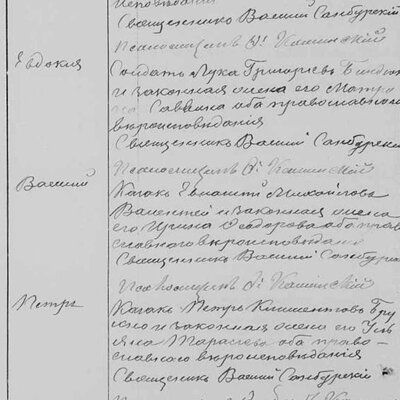 исповѣданія
Священникъ Василій Санбурскій
Псаломщикъ Ѳ. Каминскій
Евдокія
Солдатъ Лука Григорьевъ
и законная жена его Матро-
на Саввина оба православнаго
вѣроисповѣданія
Священникъ Василій Санбурскій
Псаломщикъ Каминскій
Василій
Козакъ Евпатій Михайловъ
и законная жена
его Ирина Ѳеодорова оба пра-
славнаго вѣроисповѣданія
Священникъ Василій Санбурскій
Псаломщикъ Каминскій
Петръ
Козакъ Петръ Климентовъ
и законная жена его Уль-
яна Тарасіева оба право-
славнаго вѣроисповѣданія
Священникъ Василій Санбурскій